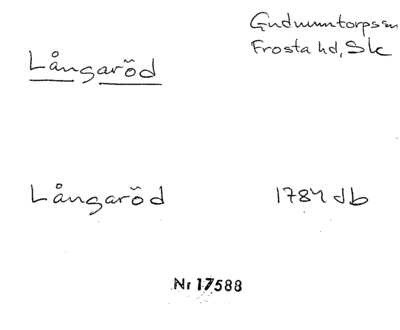 Gudmuntorps sn
Frosta hd, Sk
Långaröd
Långaröd 1784 db
Nr 17588